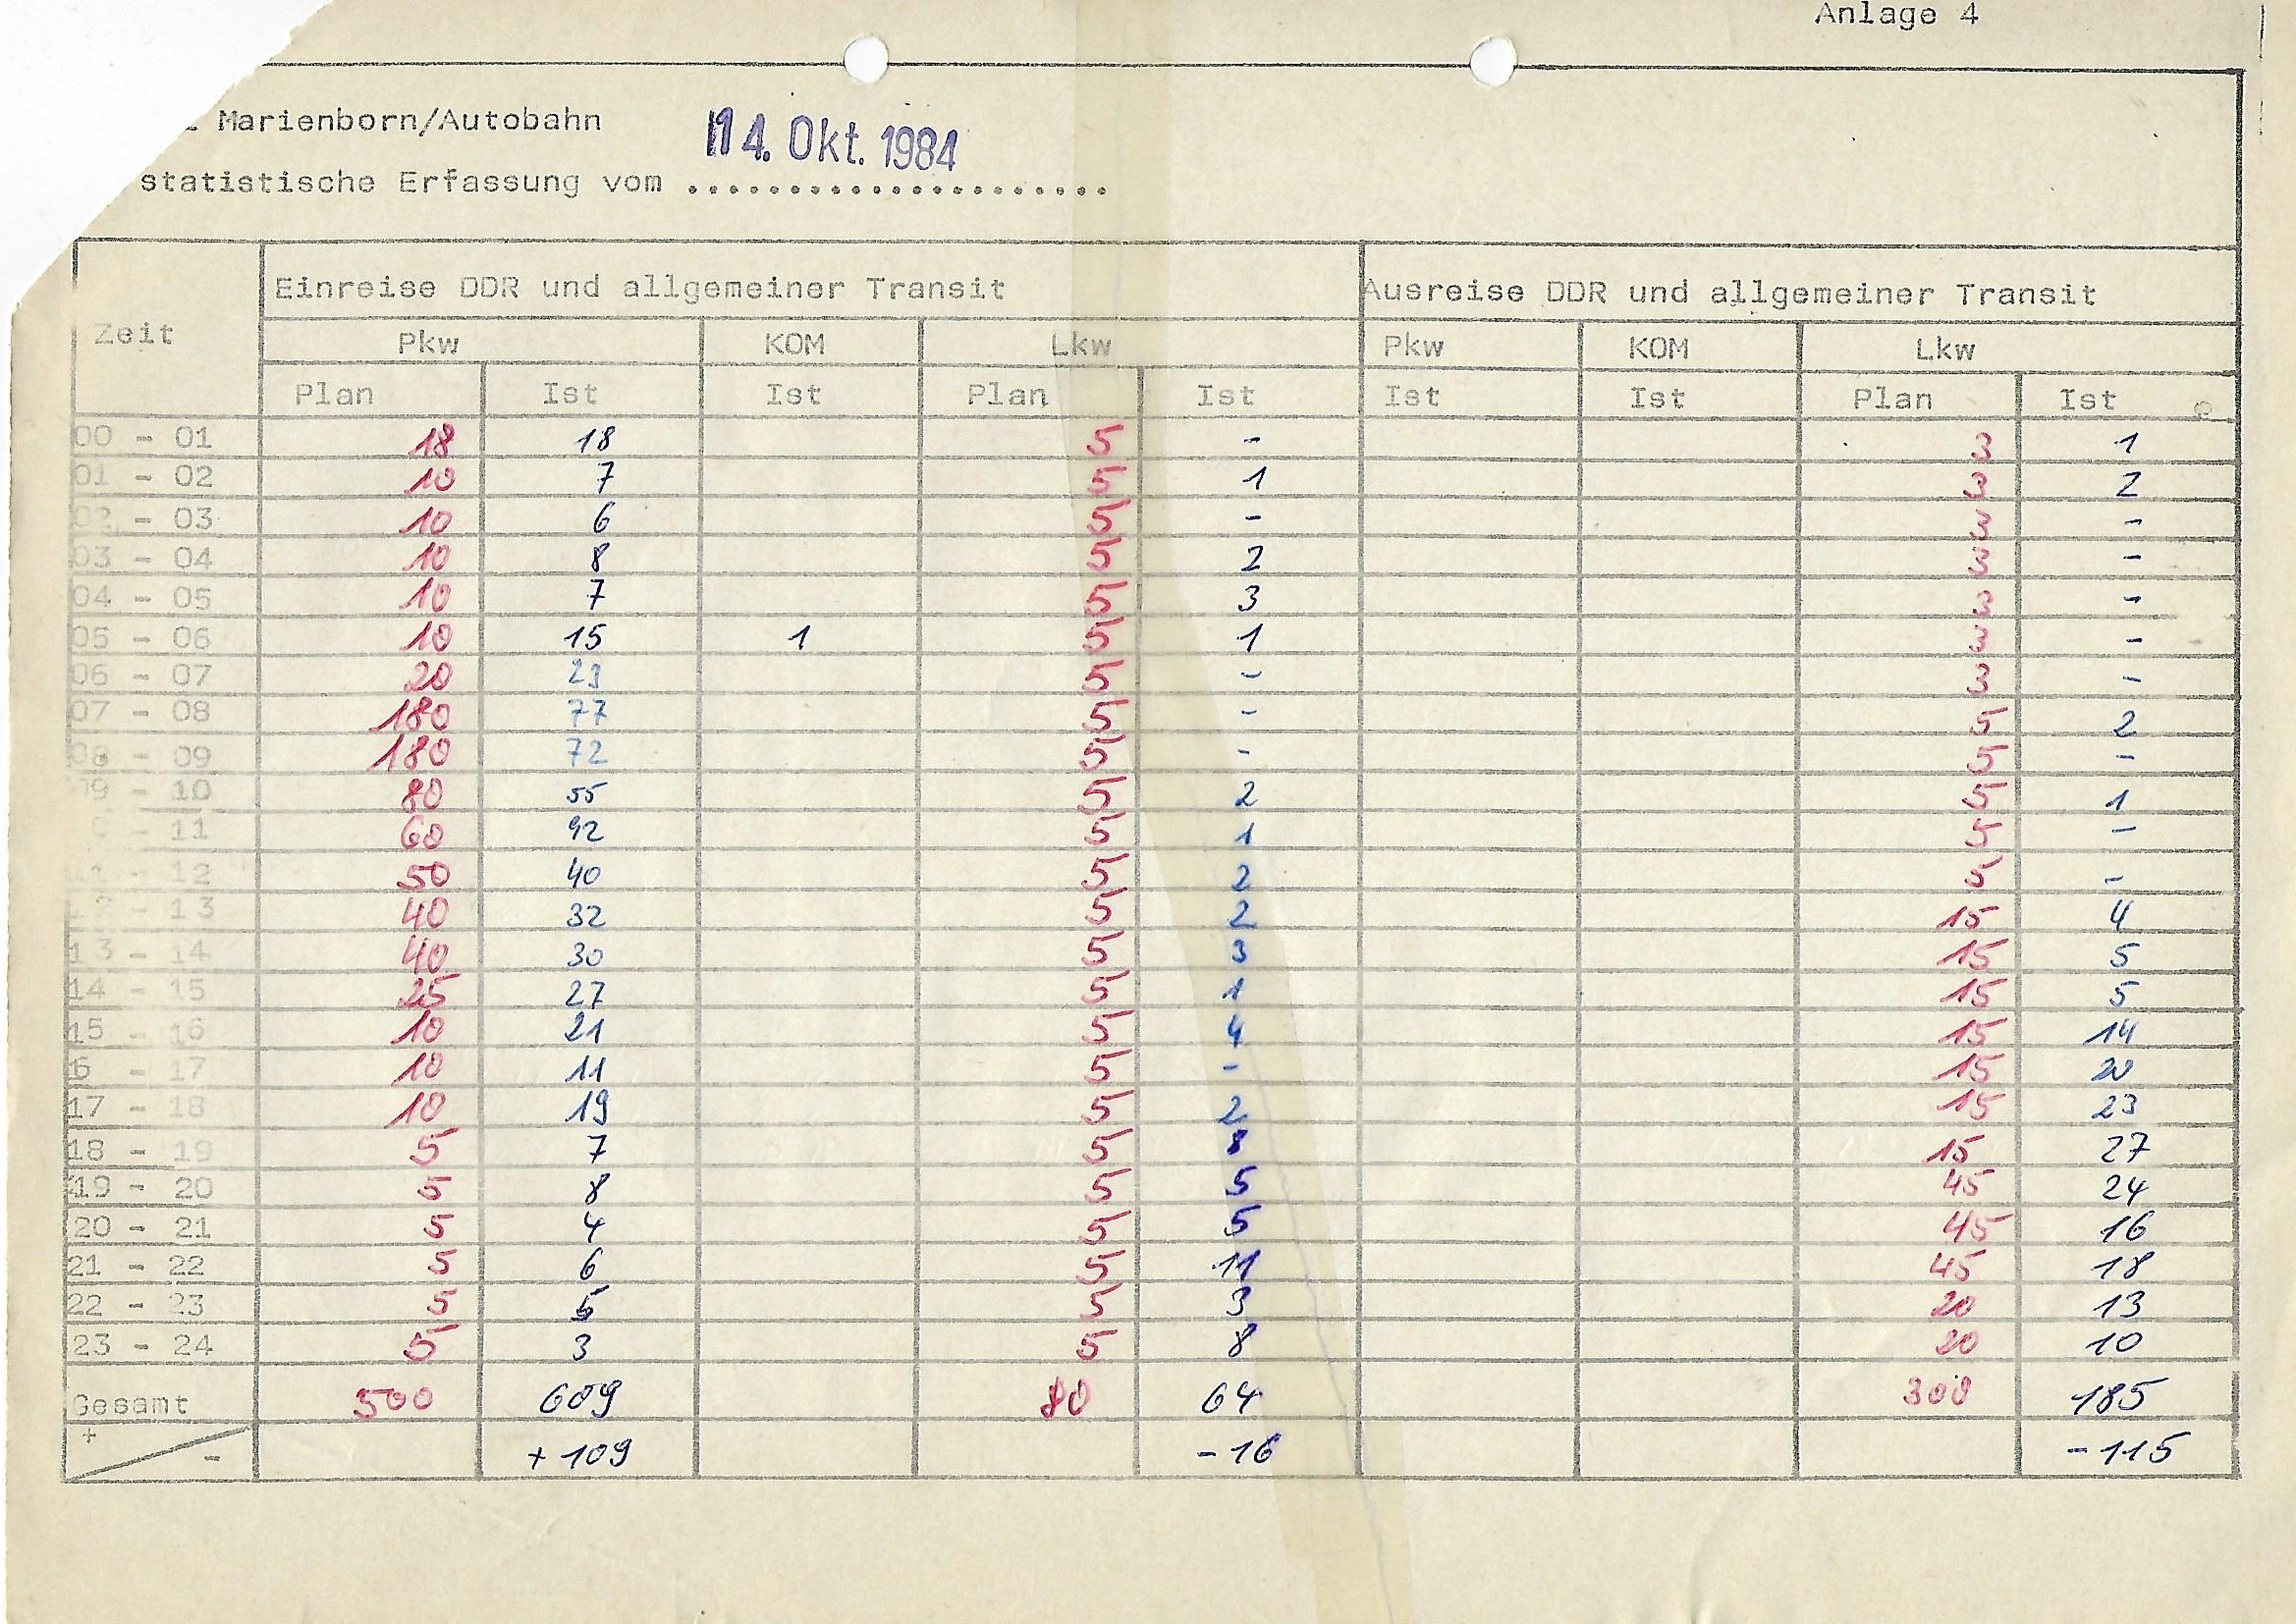 Anlage 4
Marienborn/Autobahn
14. Okt. 1984
statistische Erfassung vom ......................
Einreise DDR und allgemeiner Transit Ausreise DDR und allgemeiner Transit
Zeit
Pkw KOM Lkw Pkw KOM Lkw
Plan Ist Ist Plan Ist Ist Ist Plan Ist
00 - 01 18 18 5 - 3 1
01 - 02 10 7 5 1 3 2
02 - 03 10 6 5 - 3 -
03 - 04 10 8 5 2 3 -
04 - 05 10 7 5 3 3 -
05 - 06 10 15 1 5 1 3 -
06 - 07 20 5 - 3 -
07 - 08 180 77 5 - 5 2
08 - 09 180 72 5 - 5 -
09 - 10 80 55 5 2 5 1
- 11 60 92 5 1 5 -
- 12 50 40 5 2 5 -
12 - 13 40 32 5 2 15 4
13 - 14 40 30 5 3 15 5
14 - 15 25 27 5 1 15 5
15 - 16 10 21 5 4 15 14
6 - 17 10 11 5 - 15 20
17 - 18 10 19 5 2 15 23
18 - 19 5 7 5 8 15 27
19 - 20 5 8 5 5 45 24
20 - 21 5 4 5 5 45 16
21 - 22 5 6 5 11 45 18
22 - 23 5 5 5 3 20 13
23 - 24 5 3 5 8 20 10
Gesamt 500 609 80 64 300 185
+ - + 109 - 16 - 115